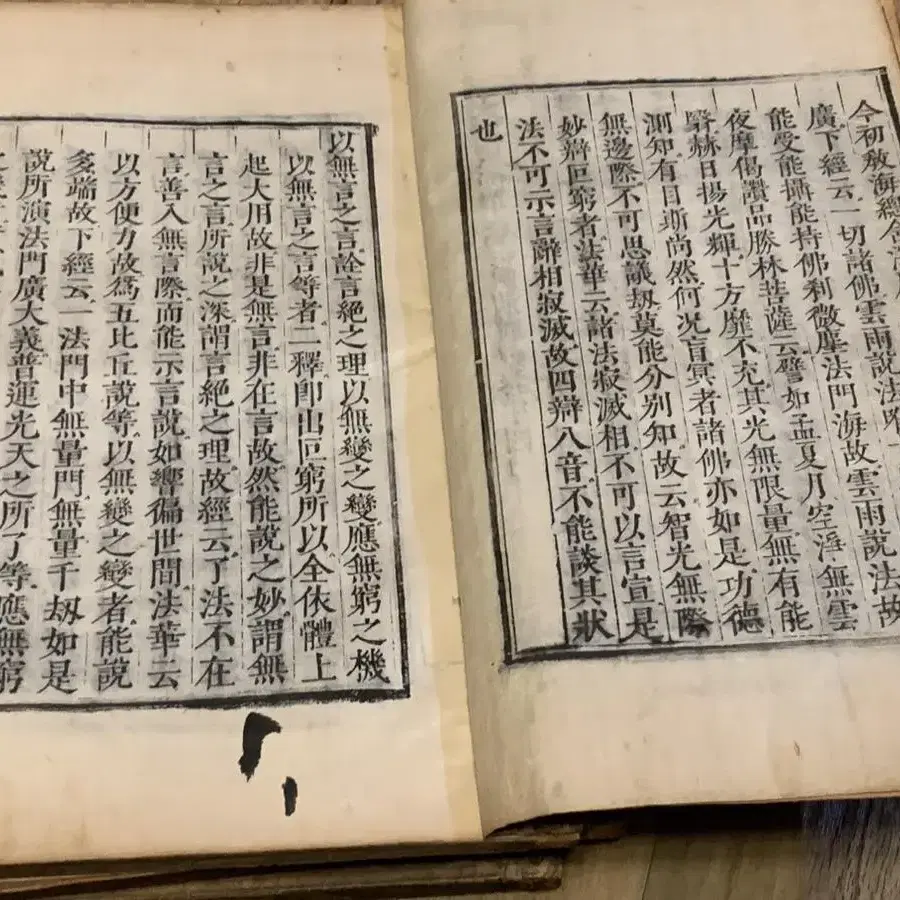 今初敘海
廣下經云一切諸佛雲雨說法
能受能攝能持佛刹微塵法門海故雲雨說法故
夜摩偈讚品勝林菩薩云譬如孟夏月空淨無雲
翳赫日揚光輝十方靡不充其光無限量無有能
測知有目斯尚然何況盲冥者諸佛亦如是功德
無邊際不可思議劫莫能分別知故云智光無際
妙辯叵窮者法華云諸法寂滅相不可以言宣是
法不可示言辭相寂滅故四辯八音不能談其狀
也
以無言之言詮言絕之理以無變之變應無窮之機
以無言之言等者二釋卽出叵窮所以全依體上
起大用故非是無言非在言故然能說之妙謂無
言之言所說之深謂言絕之理故經云了法不在
言善入無言際而能示言說如響徧世間法華云
以方便力故爲五比丘說等以無變之變者能說
多端故下經云一法門中無量門無量千劫如是
說所演法門廣大義普運光天之所了等應無窮